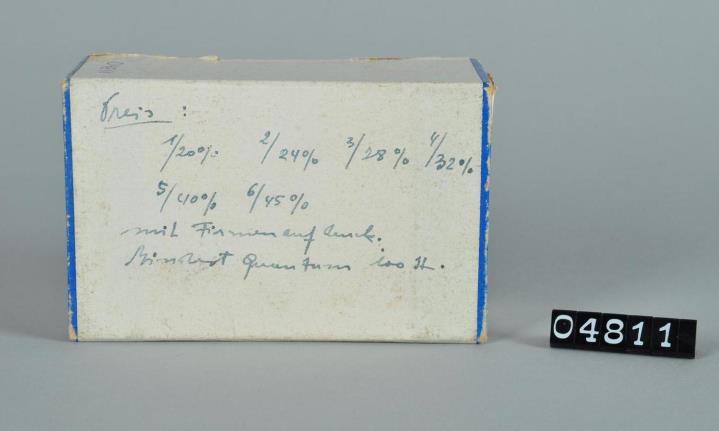 Preis :
1/20% 2/24% 3/28% 4/32%
5/40% 6/45%
mit Firmenaufdruck.
Mindest Quantum 100 St.
04811